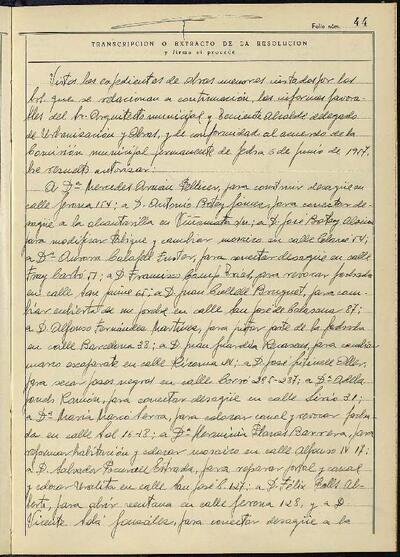 Folio núm. 44
TRANSCRIPCION O EXTRACTO DE LA RESOLUCION
y firma si procede
Vistos los expedientes de obras menores instados por los
Srs. que se relacionan a continuación, los informes favora-
bles del Sr. Arquitecto municipal y Teniente Alcalde delegado
de Urbanización y Obras, y de conformidad al acuerdo de la
Comisión municipal permanente de fecha 6 de junio de 1917,
he resuelto autorizar:
A Dª Mercedes Pellicer, para construir desagüe en
calle Gerona 154; a D. Antonio Botey para conectar
desagüe a la alcantarilla en a D. José Botey
para modificar tabique y cambiar mosaico en calle
a Dª Aurora Calafell Fuster, para conectar desagüe en calle
Fray Carbó 17; a D. Francisco para revocar fachada
en calle San Jaime 65; a D. Juan Bruguet, para cam-
biar cubierta de un en calle San José de Calasanz 87;
a D. Alfonso Fernández Martínez, para pintar parte de la fachada
en calle Barcelona 38; a D. Juan para cambiar
marco escaparate en calle a D. José
para secar pozos negros en calle Corró 285-287; a Dª Adela
Ramón, para conectar desagüe en calle Lirio 31;
a Dª María Marcó Serra, para colocar canal y revocar facha-
das en calle Sol 16-18; a Dª Herminia Planas Barrera, para
reformar habitación y colocar mosaico en calle Alfonso IV 17;
a D. Salvador Estrada, para reparar portal y canal
y colocar Uralita en calle San José C. 127; a D. Félix Al-
berto, para abrir ventana en calle Gerona 128, y a D.
Vicente Solá González, para conectar desagüe a la